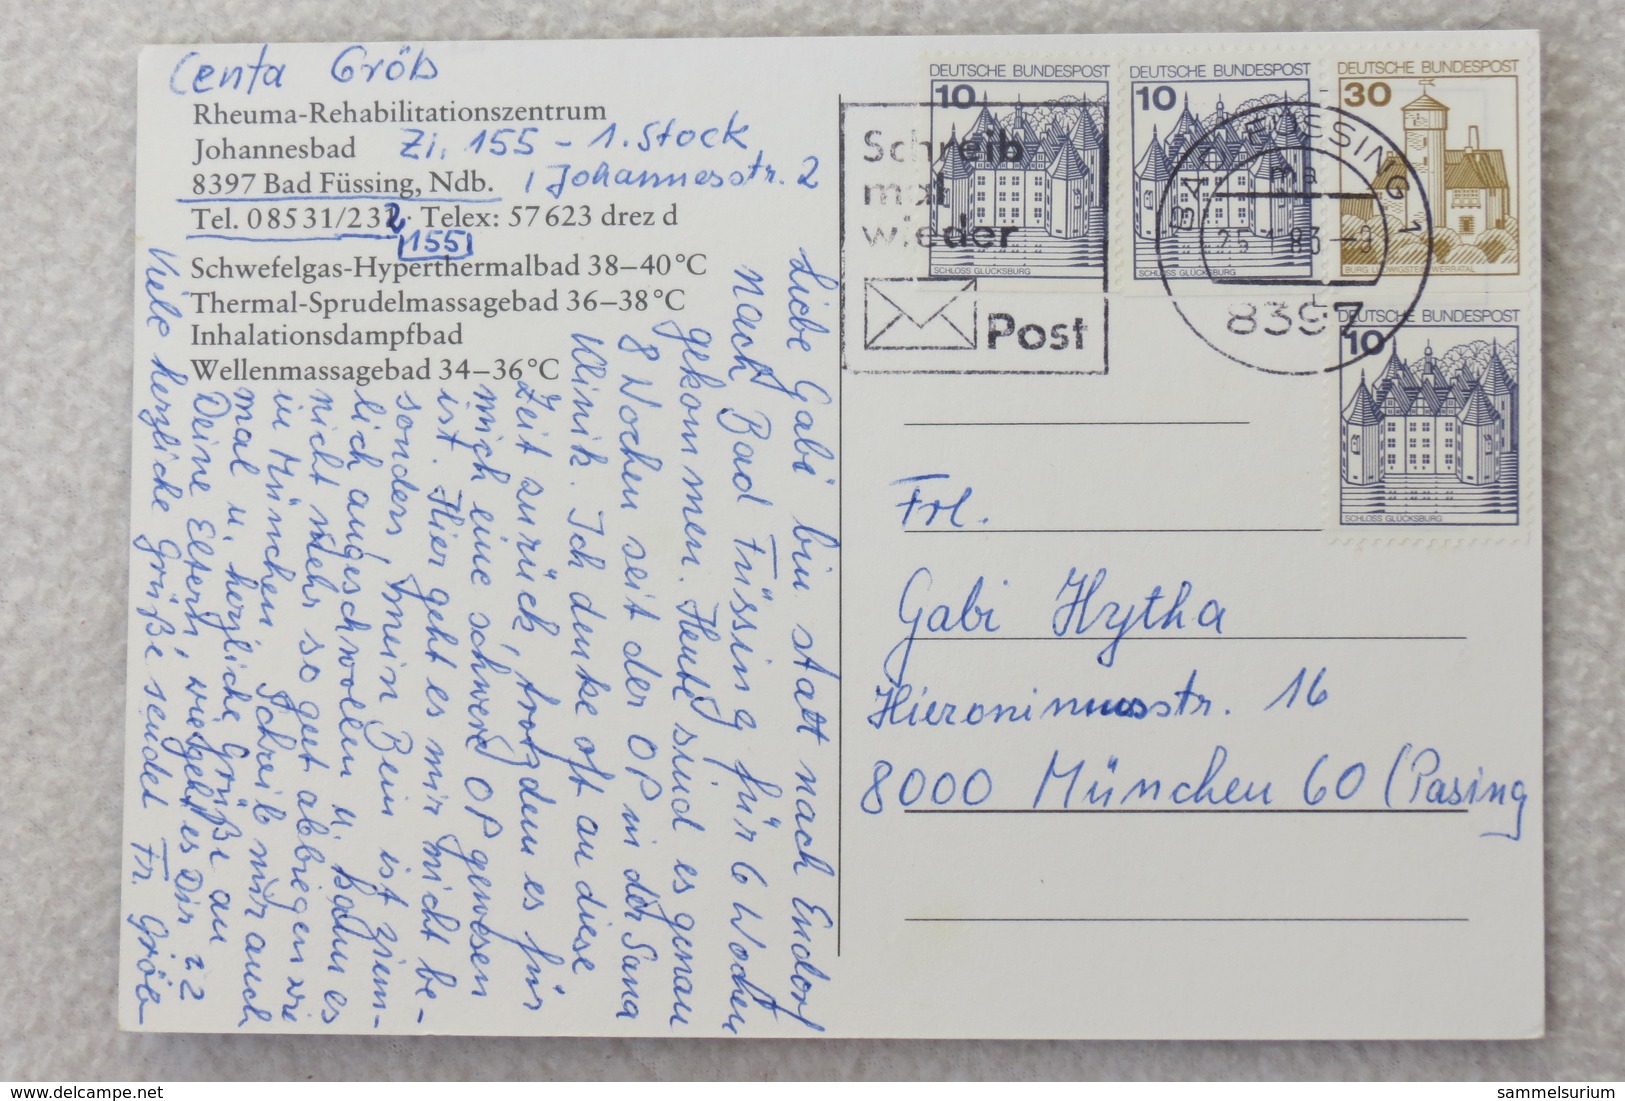 Centa Gröb
Rheuma-Rehabilitationszentrum
Johannesbad Zi. 155 - 1. Stock
8397 Bad Füssing, Ndb. , Johannesstr. 2
Tel. 08531/232 · Telex: 57623 drez d
155
Schwefelgas-Hyperthermalbad 38–40°C
Thermal-Sprudelmassagebad 36–38°C
Inhalationsdampfbad
Wellenmassagebad 34–36°C
Liebe Gabi bin statt nach Endorf
nach Bad Füssing für 6 Wochen
gekommen. Heute sind es genau
8 Wochen seit der OP in der Sana
Klinik. Ich denke oft an diese
Zeit zurück, trotzdem es für
mich eine schwere OP gewesen
ist. Hier geht es mir nicht be-
sonders, mein Bein ist ziem-
lich angeschwollen u. kann es
nicht mehr so gut abbiegen wie
in München. Schreib mir auch
mal u. herzliche Grüße an
Deine Eltern, wie geht es Dir
Viele herzliche Grüße sendet Fr. Gröb
DEUTSCHE BUNDESPOST
10
SCHLOSS GLÜCKSBURG
DEUTSCHE BUNDESPOST
10
SCHLOSS GLÜCKSBURG
DEUTSCHE BUNDESPOST
30
BURG LUDWIGSTEIN WERRATAL
DEUTSCHE BUNDESPOST
10
SCHLOSS GLÜCKSBURG
Schreib
mal
wieder
Post
BAD FÜSSING 1
ma
25.1.83
8397
Frl.
Gabi Hytha
Hieronimusstr. 16
8000 München 60 (Pasing
sammelsurium